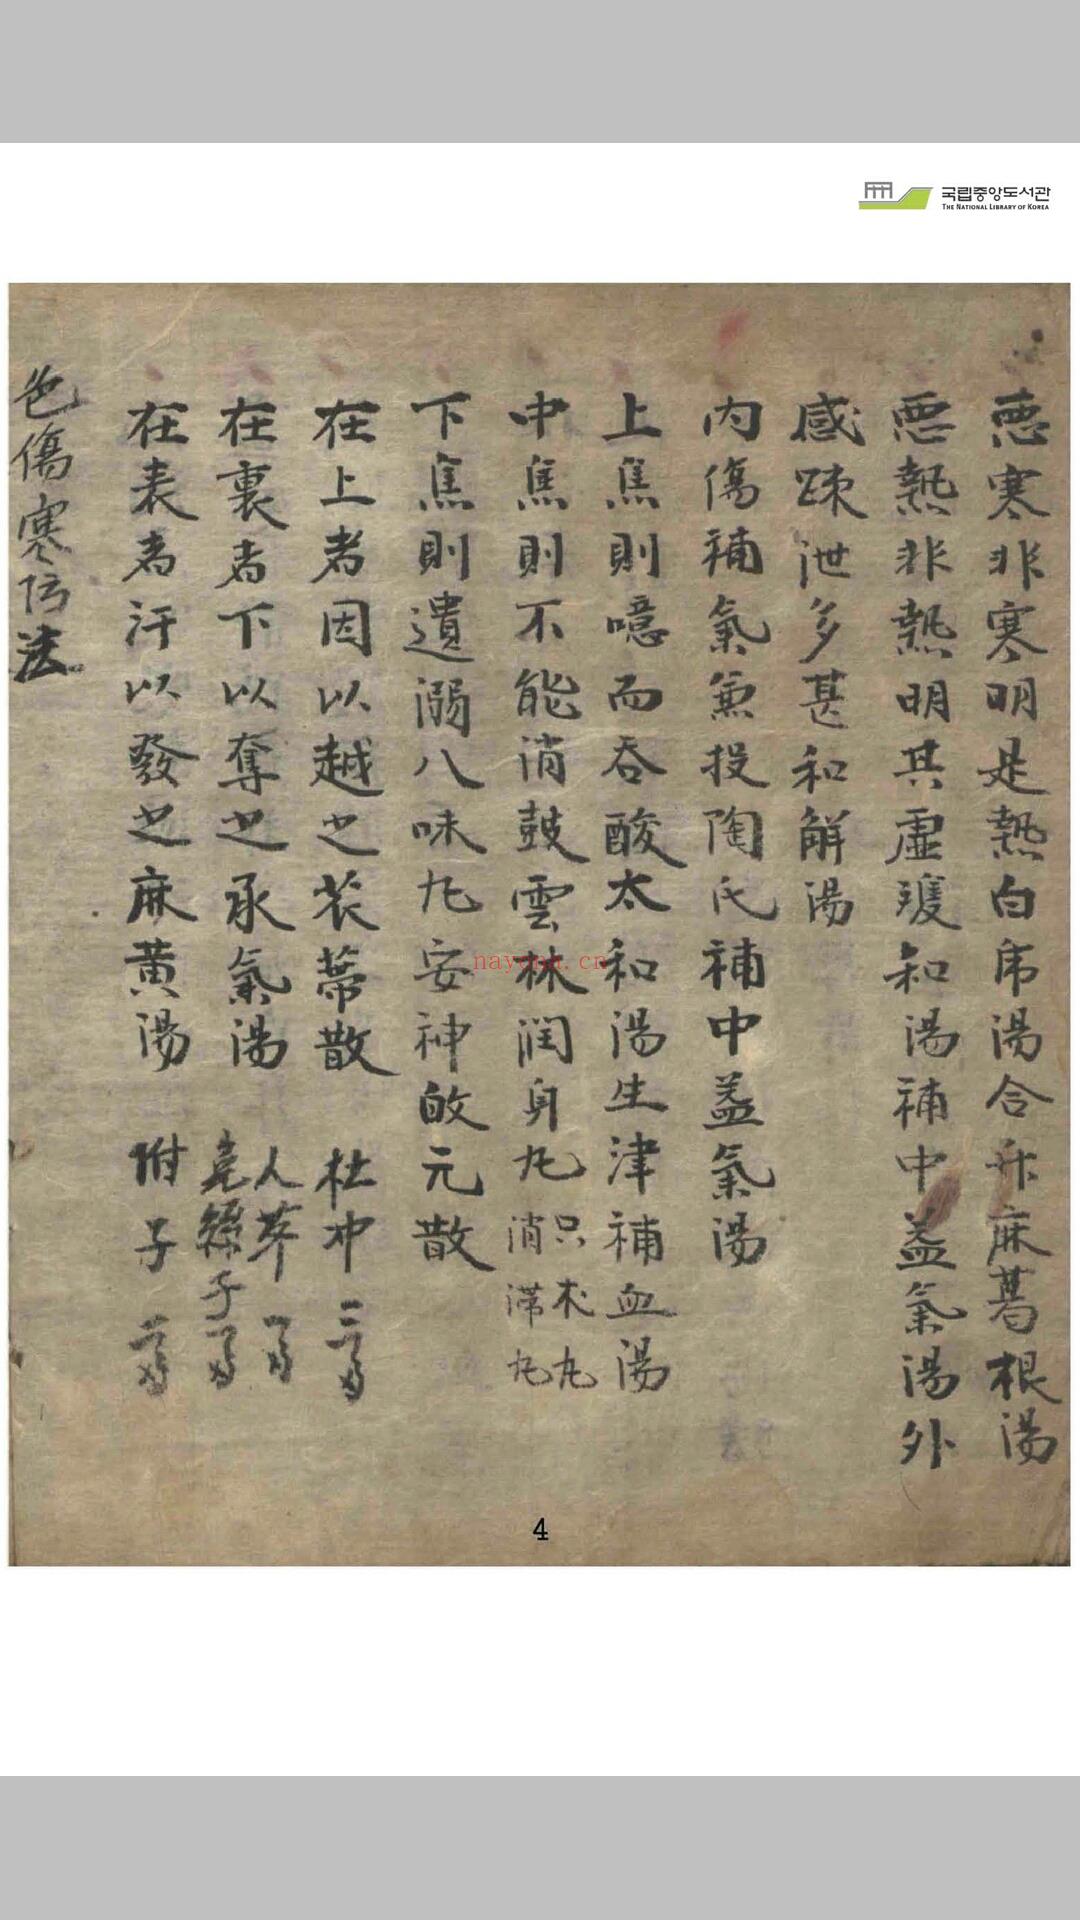 국립중앙도서관
THE NATIONAL LIBRARY OF KOREA
惡寒非寒明是熱白帍湯合升麻葛根湯
惡熱非熱明其虛和湯補中益氣湯外
感疎泄多甚和解湯
內傷補氣兼投陶氏補中益氣湯
上焦則噫而吞酸太和湯生津補血湯
中焦則不能消鼓雲林潤身丸只朮丸消滯丸
下焦則遺溺八味丸安神散元散
在上者因以越之苽蒂散 杜冲 三
在裏者下以奪之承氣湯 人
在表者汗以發之麻黃湯 附子
色傷寒法
nayona.cn
4